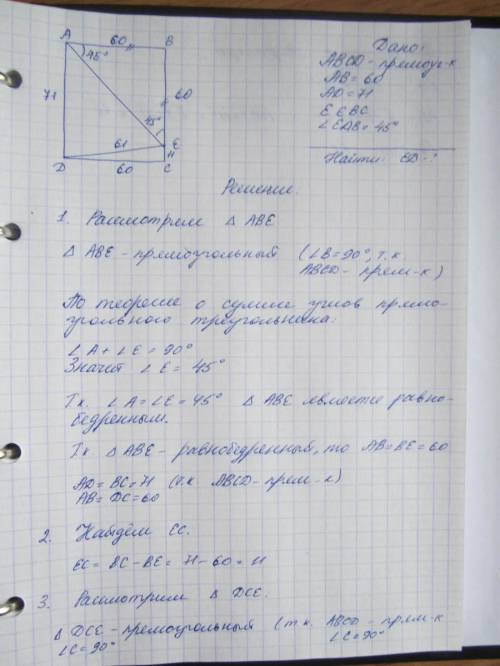 A 60 B
45°
71
60
45°
E
61
11
D 60 C
Дано:
ABCD - прямоуг-к
AB = 60
AD = 71
E ∈ BC
∠EAB = 45°
Найти: ED - ?
Решение.
1. Рассмотрим △ ABE
△ ABE - прямоугольный (∠B = 90°, т.к
ABCD - прям-к)
По теореме о сумме углов прямо-
угольного треугольника:
∠A + ∠E = 90°
Значит ∠E = 45°
Т.к. ∠A = ∠E = 45° △ ABE является равно-
бедренным.
Тк △ ABE - равнобедренный, то AB = BE = 60
AD = BC = 71 (т.к ABCD - прям-к)
AB = DC = 60
2. Найдём EC.
EC = BC - BE = 71 - 60 = 11
3. Рассмотрим △ DCE.
△ DCE - прямоугольный (т.к. ABCD - прям-к
∠C = 90° ∠C = 90°